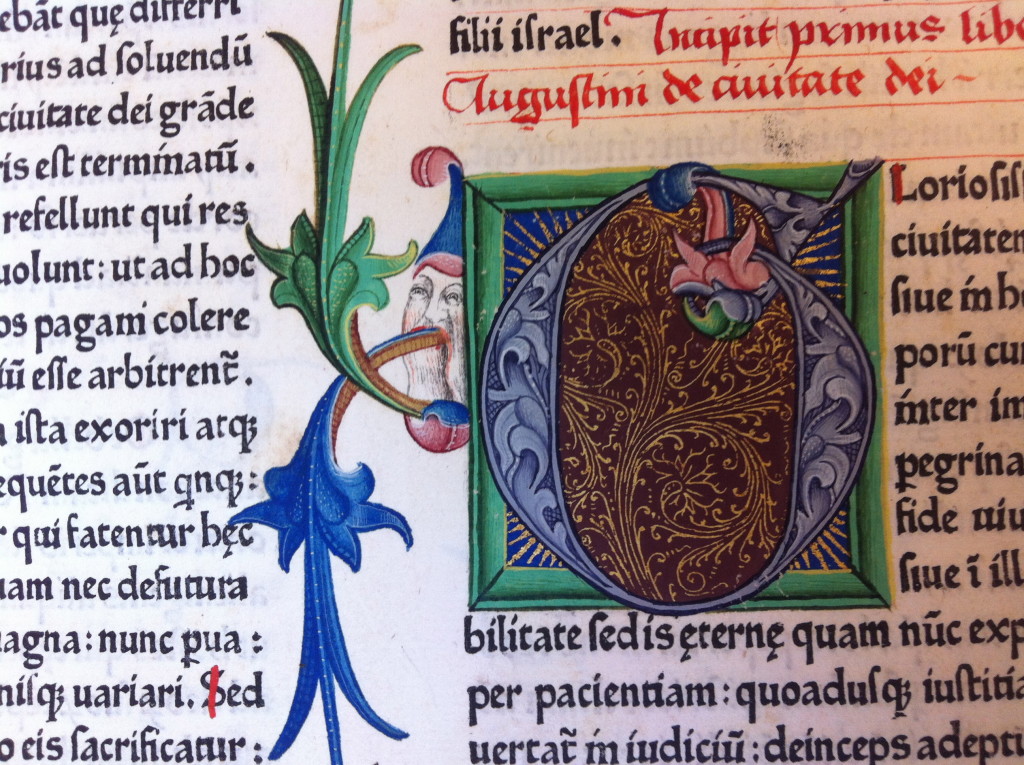 ebãt quę differri
rius ad ſoluendũ
ciuitate dei grãde
ris eſt terminatũ.
refellunt qui res
uolunt: ut ad hoc
os pagani colere
iũ eſſe arbitrent̃.
iſta exoriri atqꝫ
equẽtes aũt qnqꝫ:
qui fatentur hęc
uam nec defutura
agna: nunc ꝓua:
niſqꝫ uariari. Sed
o eis ſacrificatur:
filii iſrael. Incipit primus libe
Auguſtini de ciuitate dei
Lorioſiſ
ciuitatem
ſiue in h
porũ cu
inter im
ꝑegrina
fide uiu
ſiue ĩ ill
bilitate ſed is ęternę quam nũc exp
per pacientiam: quoaduſqꝫ iuſtitia
uertat̃ in iudiciũ: deinceps adeptu